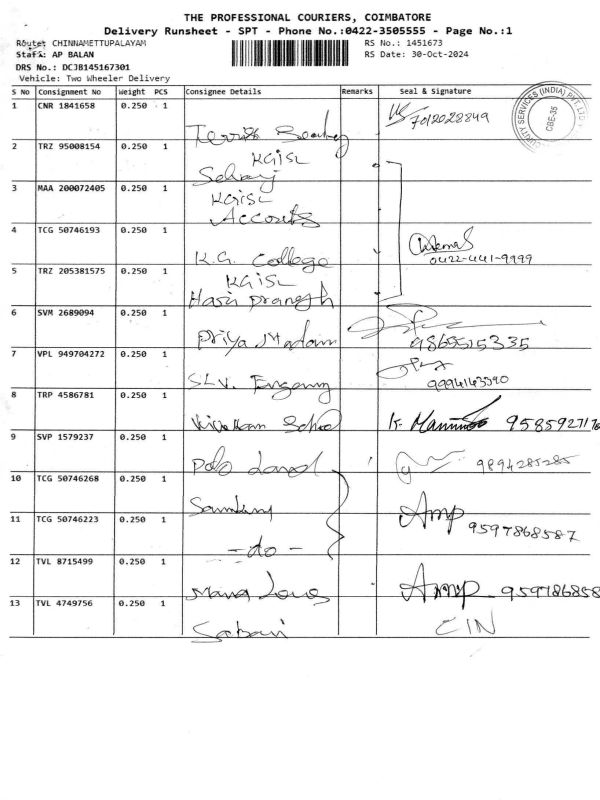 THE PROFESSIONAL COURIERS, COIMBATORE
Delivery Runsheet - SPT - Phone No.:0422-3505555 - Page No.:1
Route: CHINNAMETTUPALAYAM RS No.: 1451673
Staff: AP BALAN RS Date: 30-Oct-2024
DRS No.: DCJB145167301
Vehicle: Two Wheeler Delivery
S No Consignment No Weight PCS Consignee Details Remarks Seal & Signature
1 CNR 1841658 0.250 1 7012028849
SERVICES (INDIA) PVT.LTD
CBE-35
2 TRZ 95008154 0.250 1 KGISL
3 MAA 200072405 0.250 1 KGISL
Accounts
4 TCG 50746193 0.250 1 K.G. College 0422-441-9999
5 TRZ 205381575 0.250 1 KGISL
Hari Pranesh
6 SVM 2689094 0.250 1 Priya Madam 9865515335
7 VPL 949704272 0.250 1 SLV. 9994143590
8 TRP 4586781 0.250 1
9 SVP 1579237 0.250 1 Polo 9894285285
10 TCG 50746268 0.250 1
11 TCG 50746223 0.250 1 - do - Amp 9597868587
12 TVL 8715499 0.250 1 Amp 959786858
13 TVL 4749756 0.250 1 CIN